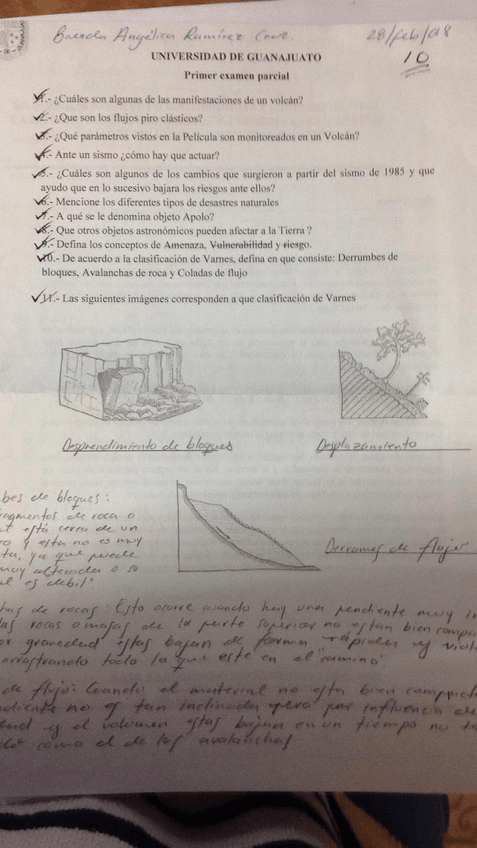 Brenda Angélica Ramírez Cruz. 28/feb/018
UNIVERSIDAD DE GUANAJUATO
10
Primer examen parcial
1.- ¿Cuáles son algunas de las manifestaciones de un volcán?
2.- ¿Que son los flujos piro clásticos?
3.- ¿Qué parámetros vistos en la Película son monitoreados en un Volcán?
4.- Ante un sismo ¿cómo hay que actuar?
5.- ¿Cuáles son algunos de los cambios que surgieron a partir del sismo de 1985 y que
ayudo que en lo sucesivo bajara los riesgos ante ellos?
6.- Mencione los diferentes tipos de desastres naturales
7.- A qué se le denomina objeto Apolo?
8.- Que otros objetos astronómicos pueden afectar a la Tierra ?
9.- Defina los conceptos de Amenaza, Vulnerabilidad y riesgo.
10.- De acuerdo a la clasificación de Varnes, defina en que consiste: Derrumbes de
bloques, Avalanchas de roca y Coladas de flujo
11.- Las siguientes imágenes corresponden a que clasificación de Varnes
Desprendimiento de bloques Desplazamiento
bes de bloques:
fragmentos de roca o
está cerca de un
y esta no es muy
ta, ya que puede
muy alterada o su
es debil"
Derrames de flujos
has de rocas: Esto ocurre cuando hay una pendiente muy in
las rocas o masas de la parte superior no estan bien compac
or gravedad estas bajan de forma rápida y viol
arrastrando todo lo que este en el "camino"
de flujo: Cuando el material no esta bien compacto
ndiente no es tan inclinada pero por influencia de
y el volumen estas bajan en un tiempo no ta
do como el de las avalanchas